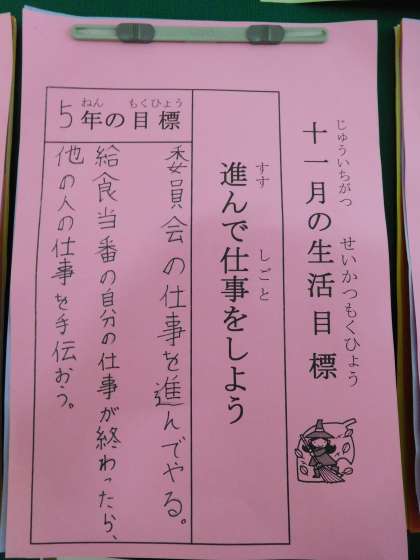 十一月の生活目標
じゅういちがつ せいかつもくひょう
進んで仕事をしよう
すす しごと
5年の目標
ねん もくひょう
委員会の仕事を進んでやる。
給食当番の自分の仕事が終わったら、
他の人の仕事を手伝おう。